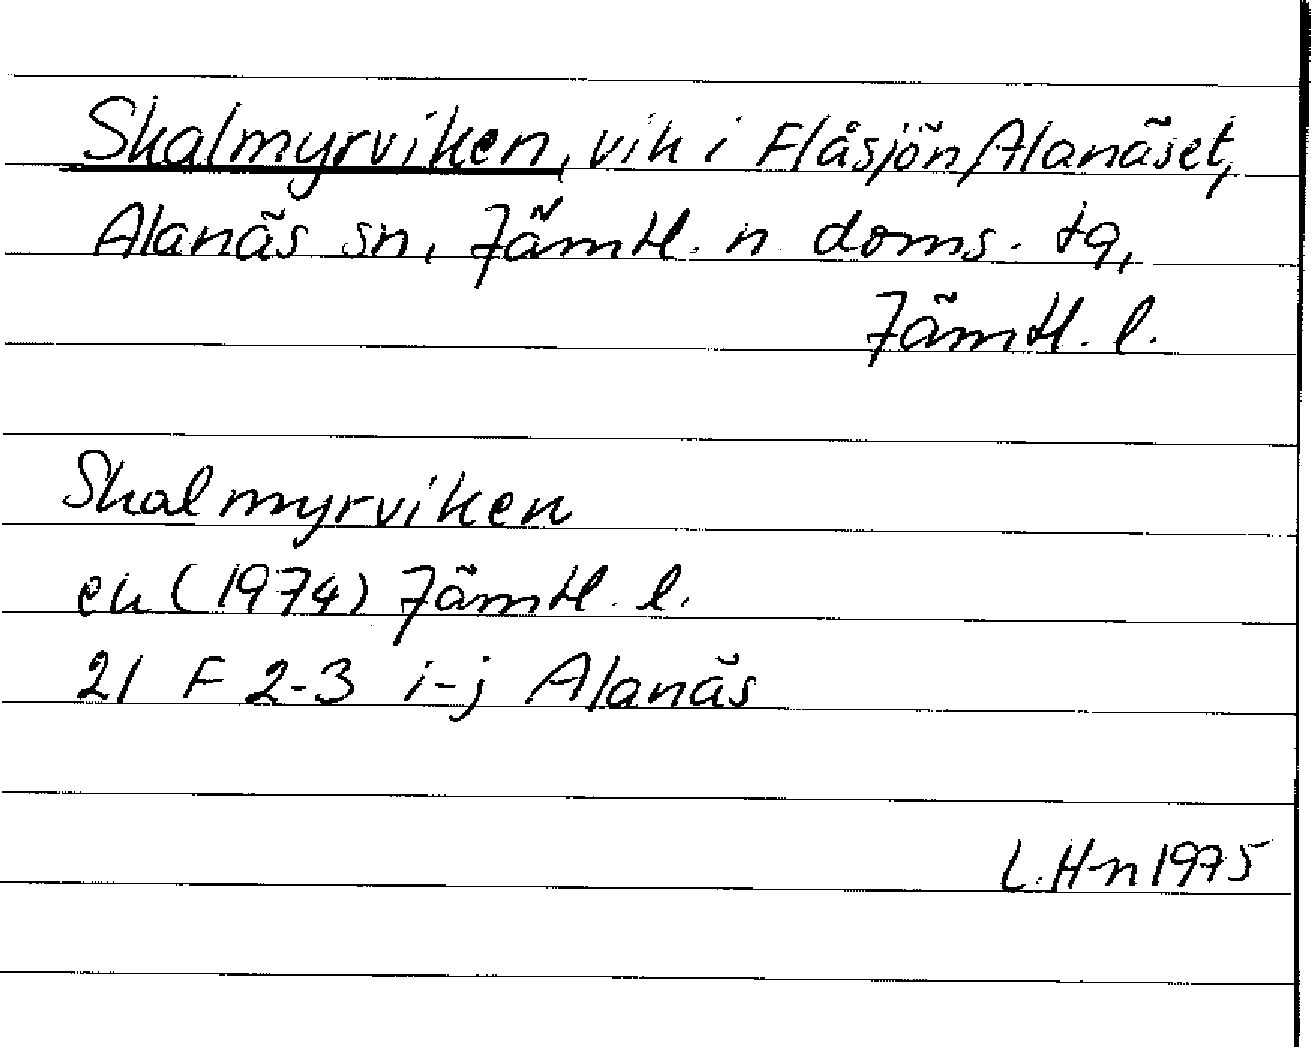 Skalmyrviken, vik i Flåsjön/Alanäset,
Alanäs sn, Jämtl. n. doms. tg,
Jämtl. l.
Skalmyrviken
ek (1974) Jämtl. l.
21 F 2-3 i-j Alanäs
L.H-n 1975